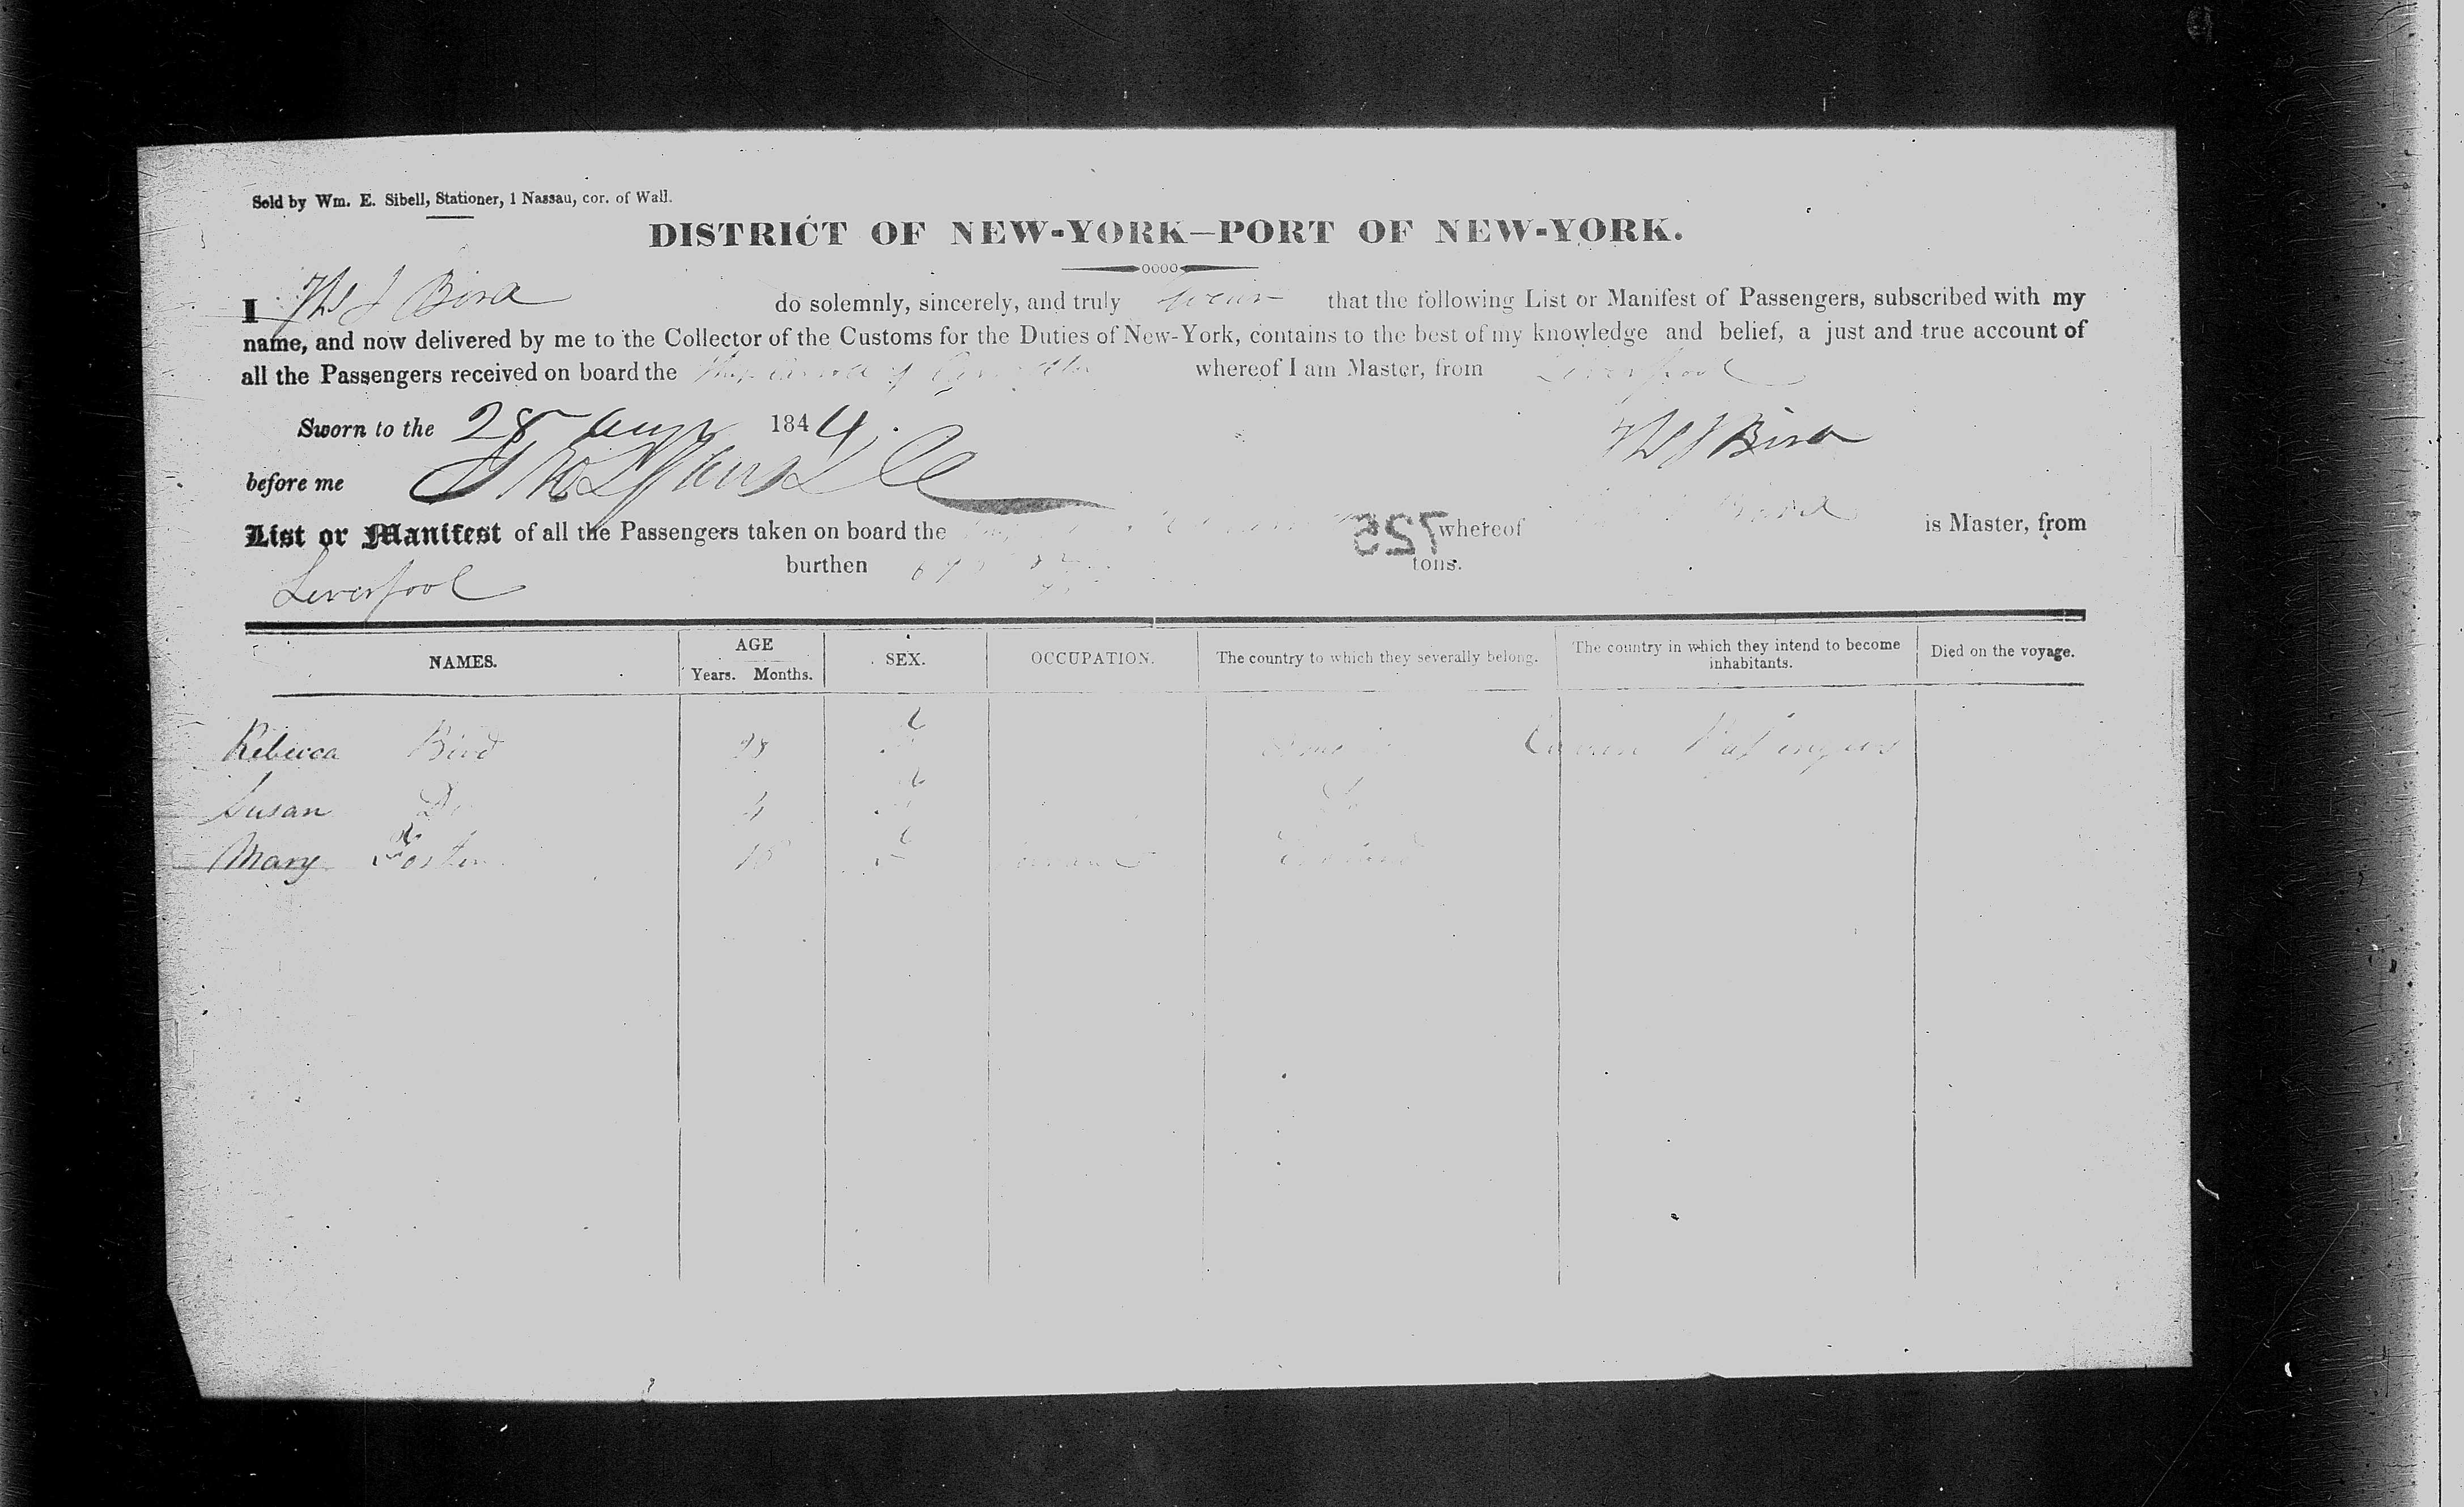 Sold by Wm. E. Sibell, Stationer, 1 Nassau, cor. of Wall.
DISTRICT OF NEW-YORK—PORT OF NEW-YORK.
I Thos J Bird do solemnly, sincerely, and truly swear that the following List or Manifest of Passengers, subscribed with my
name, and now delivered by me to the Collector of the Customs for the Duties of New-York, contains to the best of my knowledge and belief, a just and true account of
all the Passengers received on board the Ship whereof I am Master, from Liverpool
Sworn to the 28 Aug 1844. Thos J Bird
before me
List or Manifest of all the Passengers taken on board the whereof Bird is Master, from
725
Liverpool burthen tons.
NAMES. AGE SEX. OCCUPATION. The country to which they severally belong. The country in which they intend to become inhabitants. Died on the voyage.
Years. Months.
Rebecca Bird 28 Cabin Passengers
Susan Do 4 Do
Mary Foster 18